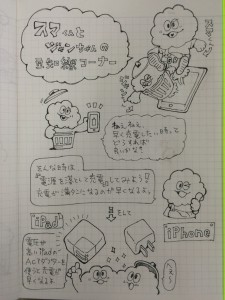 スマくんと
ジャンちゃんの
豆知識コーナー
ねぇ、ねぇ、
早く充電したい時って
どうすれば
良いかなぁ
そんな時は
"電源を落として充電"してみよう!!
充電が満タンになるのが早くなるよ。
そして
iPad
iPhone
電圧が
高いiPadの
ACアダプターを
使うと充電が
早くなるよ